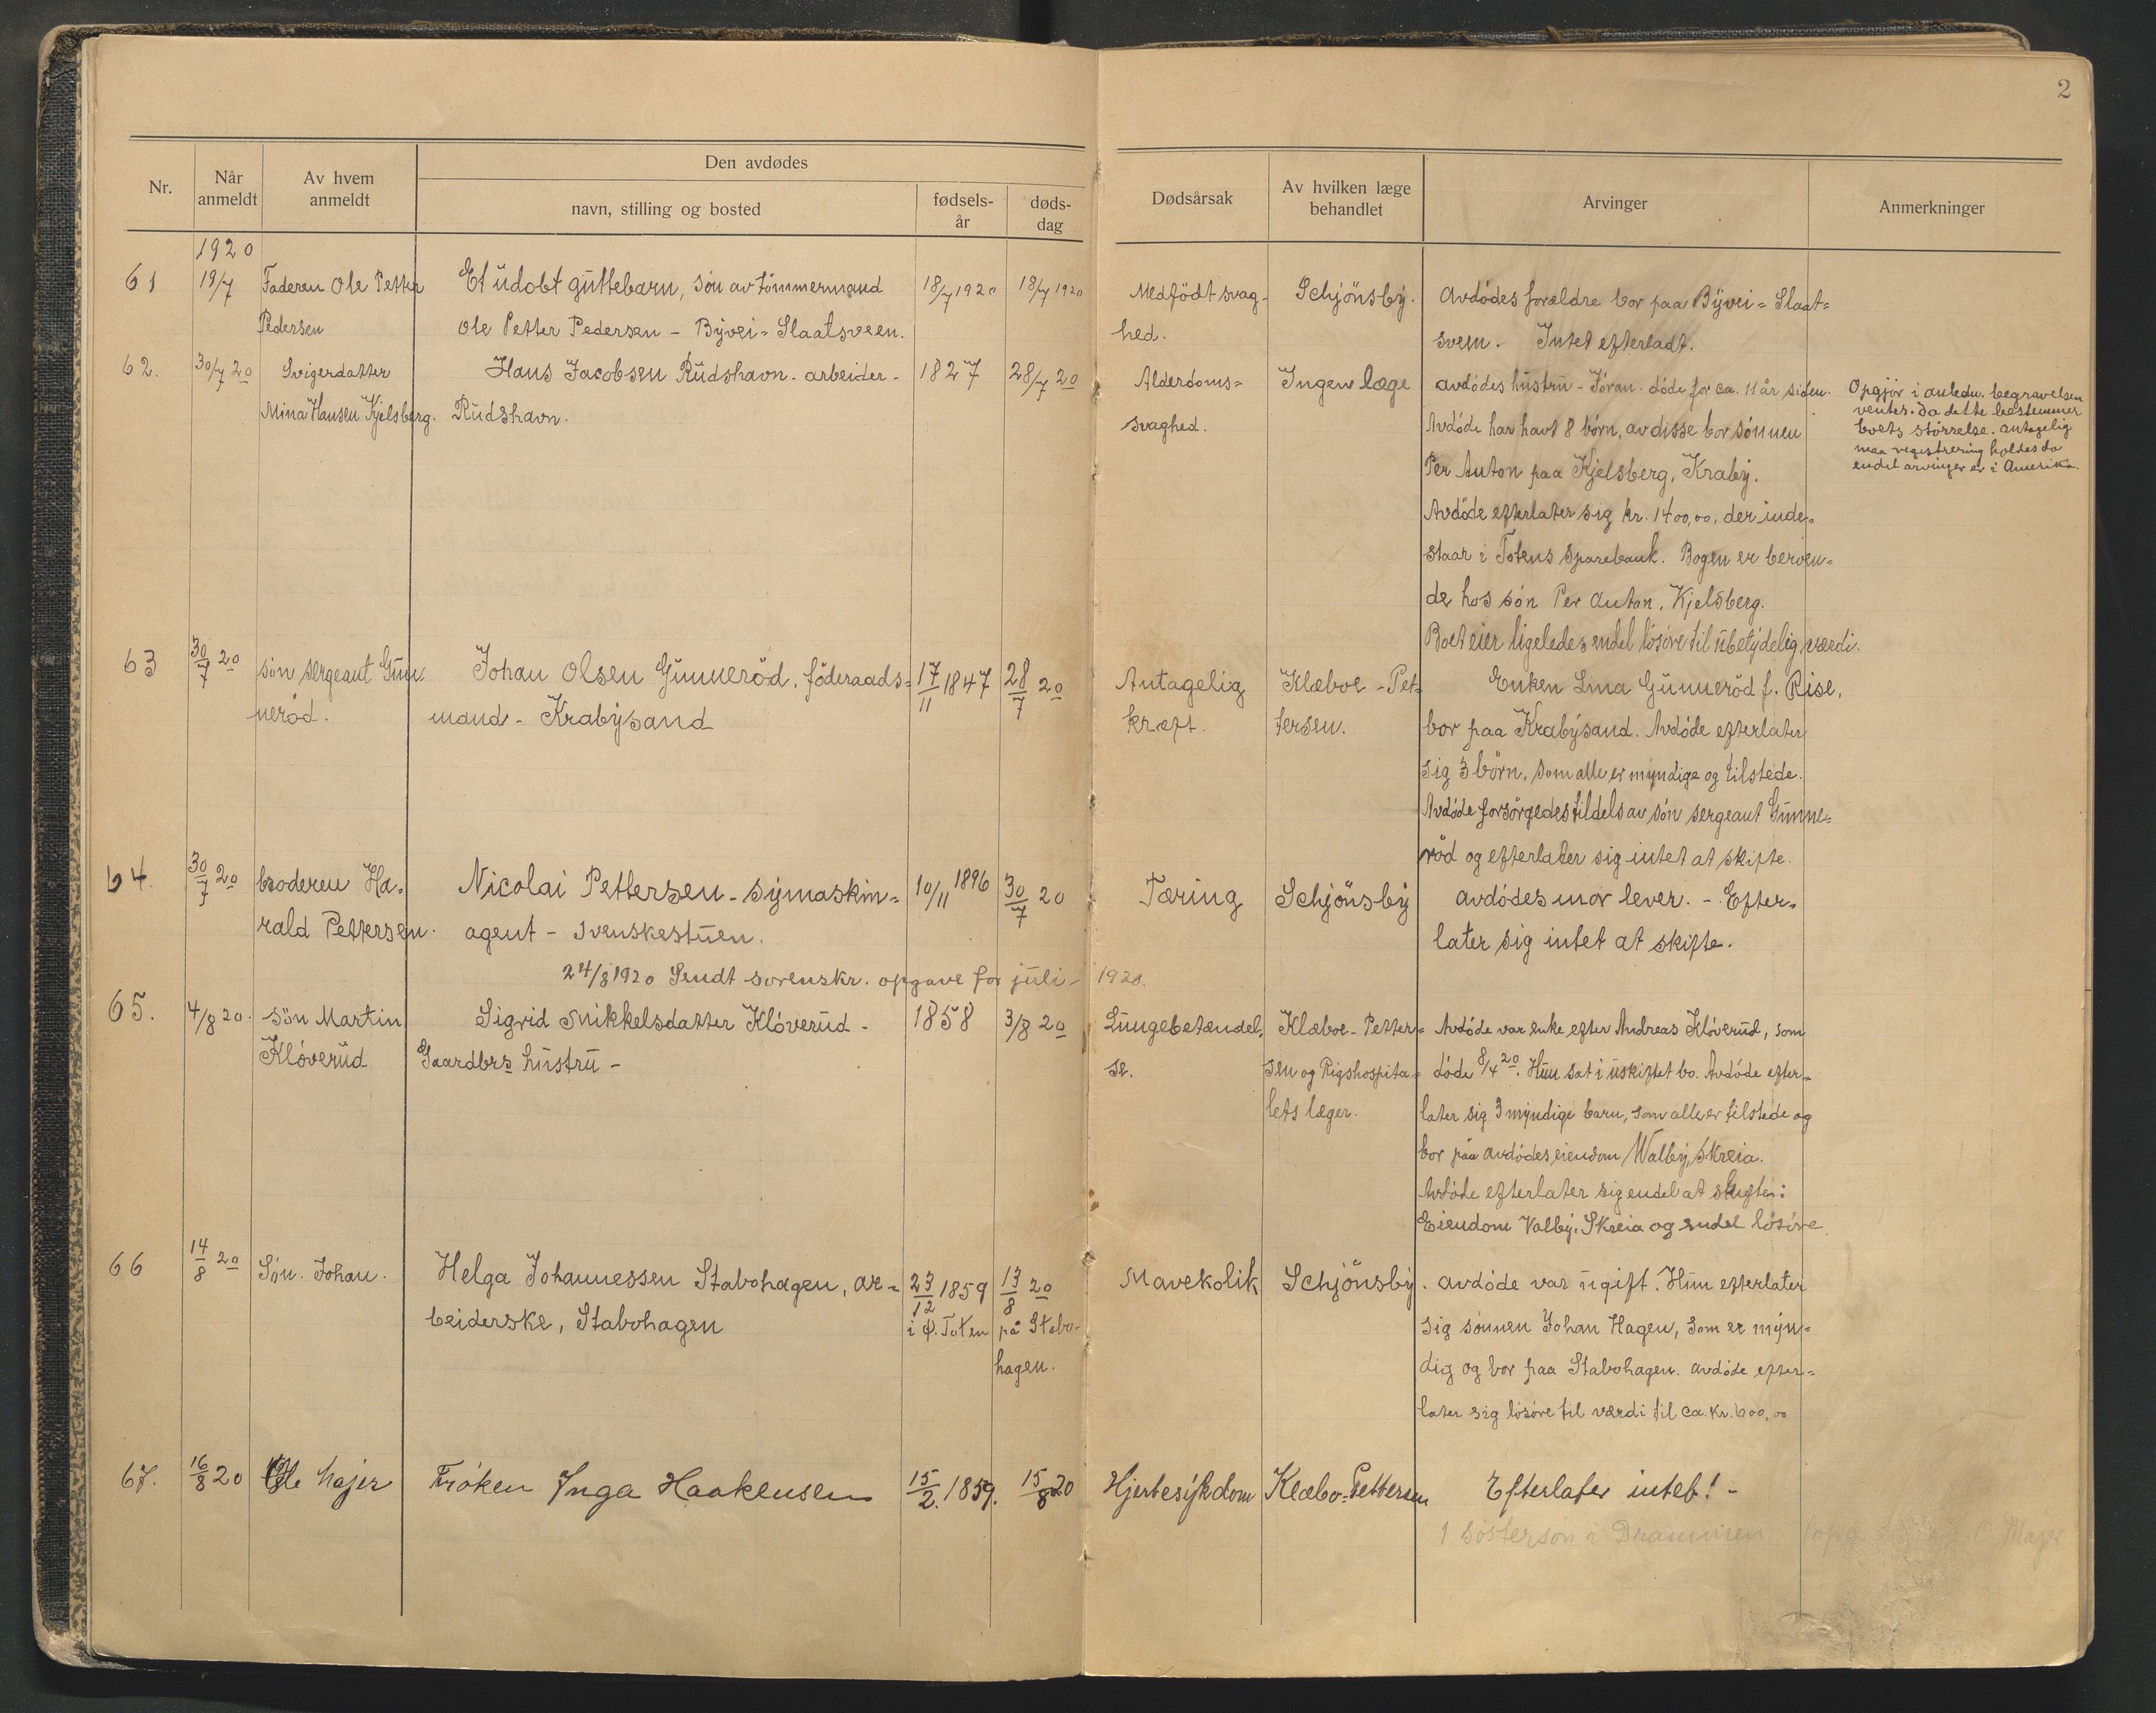 2
Nr.
Når anmeldt
Av hvem anmeldt
Den avdødes
navn, stilling og bosted
fødsels-år
døds-dag
Dødsårsak
Av hvilken læge behandlet
Arvinger
Anmerkninger
1920
61 19/7 Faderen Ole Petter Et udøbt guttebarn, søn av tømmermand 18/7 1920 18/7 1920 Medfødt svag- Schjønsby. Avdødes forældre bor paa Byvei = Slaat=
Pedersen Ole Petter Pedersen - Byvei = Slaatsveen. hed. sveen. Intet efterladt.
62. 30/7 20 Svigerdatter Hans Jacobsen Rudshavn - arbeider - 1827 28/7 20 Alderdoms= Ingen læge avdødes hustru - Jøran - døde for ca. 11 år siden.
Mina Hansen Kjelsberg. Rudshavn. svaghed. Avdøde har havt 8 børn, av disse bor sønnen
Per Anton paa Kjelsberg, Kraby.
Avdøde efterlater sig kr. 1400,00, der inde=
staar i Totens Sparebank. Bogen er beroen=
de hos søn Per Anton, Kjelsberg.
Boet eier ligeledes endel løsøre til ubetydelig værdi.
Opgjør i anledn. begravelsen
ventes. Da dette bestemmer
boets størrelse. antagelig
maa registrering holdes da
endel arvinger er i Amerika.
63 30/7 20 søn sergeant Gun Johan Olsen Gunnerød, føderaads= 17/11 1847 28/7 20 Antagelig Klæboe - Pet= Enken Lina Gunnerød f. Rise,
nerød. mand - Krabysand kræft. tersen. bor paa Krabysand. Avdøde efterlater
sig 3 børn, som alle er myndige og tilstede.
Avdøde forsørgedes tildels av søn sergeant Gunne=
rød og efterlater sig intet at skifte.
64. 30/7 20 broderen Ha= Nicolai Pettersen - symaskin= 10/11 1896 30/7 20 Tæring Schjønsby avdødes mor lever. - Efter=
rald Pettersen. agent - Svenskestuen. later sig intet at skifte.
24/8 1920 Sendt sorenskr. opgave for juli - 1920.
65. 4/8 20. søn Martin Sigrid Snikkelsdatter Kløverud - 1858 3/8 20 Lungebetændel= Klæboe - Petter= Avdøde var enke efter Andreas Kløverud, som
Kløverud Gaardbrs hustru - se. sen og Rigshospita= døde 8/4 20. Hun sat i uskiftet bo. Avdøde efter=
lets læger. later sig 3 myndige barn, som alle er tilstede og
bor paa avdødes eiendom Walby, Skreia.
Avdøde efterlater sig endel at skifte:
Eiendom Valby, Skreia og endel løsøre.
66 14/8 20 Søn. Johan. Helga Johannessen Stabohagen, ar= 23/12 1859 13/8 20 Mavekolik Schjønsby. avdøde var ugift. Hun efterlater
beiderske, Stabohagen i Ø. Toten på Stabo- sig sønnen Johan Hagen, som er myn=
hagen. dig og bor paa Stabohagen. avdøde efter=
later sig løsøre til værdi til ca. kr. 600,00
67. 16/8 20 Ole Majer Frøken Inga Haakensen 15/2. 1859. 15/8 20 Hjertesykdom Klæbo=Pettersen Efterlater intet! -
1 søstersøn i Drammen Majer